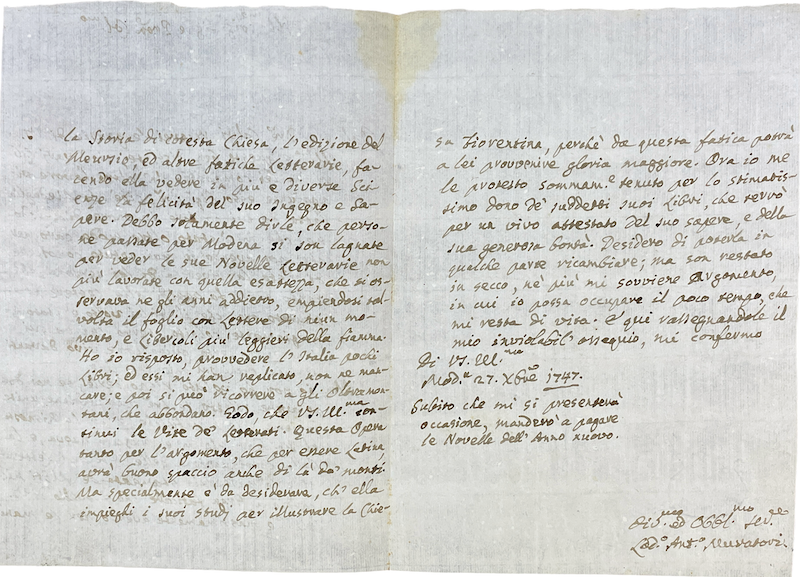 la Storia di cotesta Chiesa, l'edizione del
Meursio, ed altre fatiche Letterarie, fa-
cendo ella vedere in più e diverse Sci-
enze la felicità del suo Ingegno e Sa-
pere. Debbo solamente dirle, che perso-
ne passate per Modena si son lagnate
per veder le sue Novelle Letterarie non
più lavorate con quella esattezza, che si os-
servava ne gli anni addietro, empiendosi tal-
volta il foglio con Lettere di niun mo-
mento, e Libercoli più leggieri della fiamma.
Ho io risposto, provvedere l'Italia pochi
Libri; ed essi mi han replicato, non ne man-
care; e poi si può ricorrere a gli Oltramon-
tani, che abbondano. Godo, che VS. Ill.ma con-
tinui le Vite de' Letterati. Questa Opera
tanto per l'argomento, che per essere Latina,
avrà buono spaccio anche di là da' monti.
Ma specialmente è da desiderare, ch'ella
impieghi i suoi studj per illustrare la Chie-
sa Fiorentina, perchè da questa fatica potrà
a lei provvenire gloria maggiore. Ora io me
le protesto sommam.e tenuto per lo stimatis-
simo dono de' suddetti suoi Libri, che servirò
per un vivo attestato del suo sapere, e della
sua generosa bontà. Desidero di poterla in
qualche parte ricambiare; ma son restato
in secco, nè più mi sovviene Argomento,
in cui io possa occupare il poco tempo, che
mi resta di vita. E qui rassegnandole il
mio inviolabil ossequio, mi confermo
Di VS. Ill.ma
Mod.a 27. Xbre 1747.
Subito che mi si presenterà
occasione, manderò a pagare
le Novelle dell'Anno nuovo.
Div.mo ed Obbl.mo Ser.re
Lod.o Ant.o Muratori.